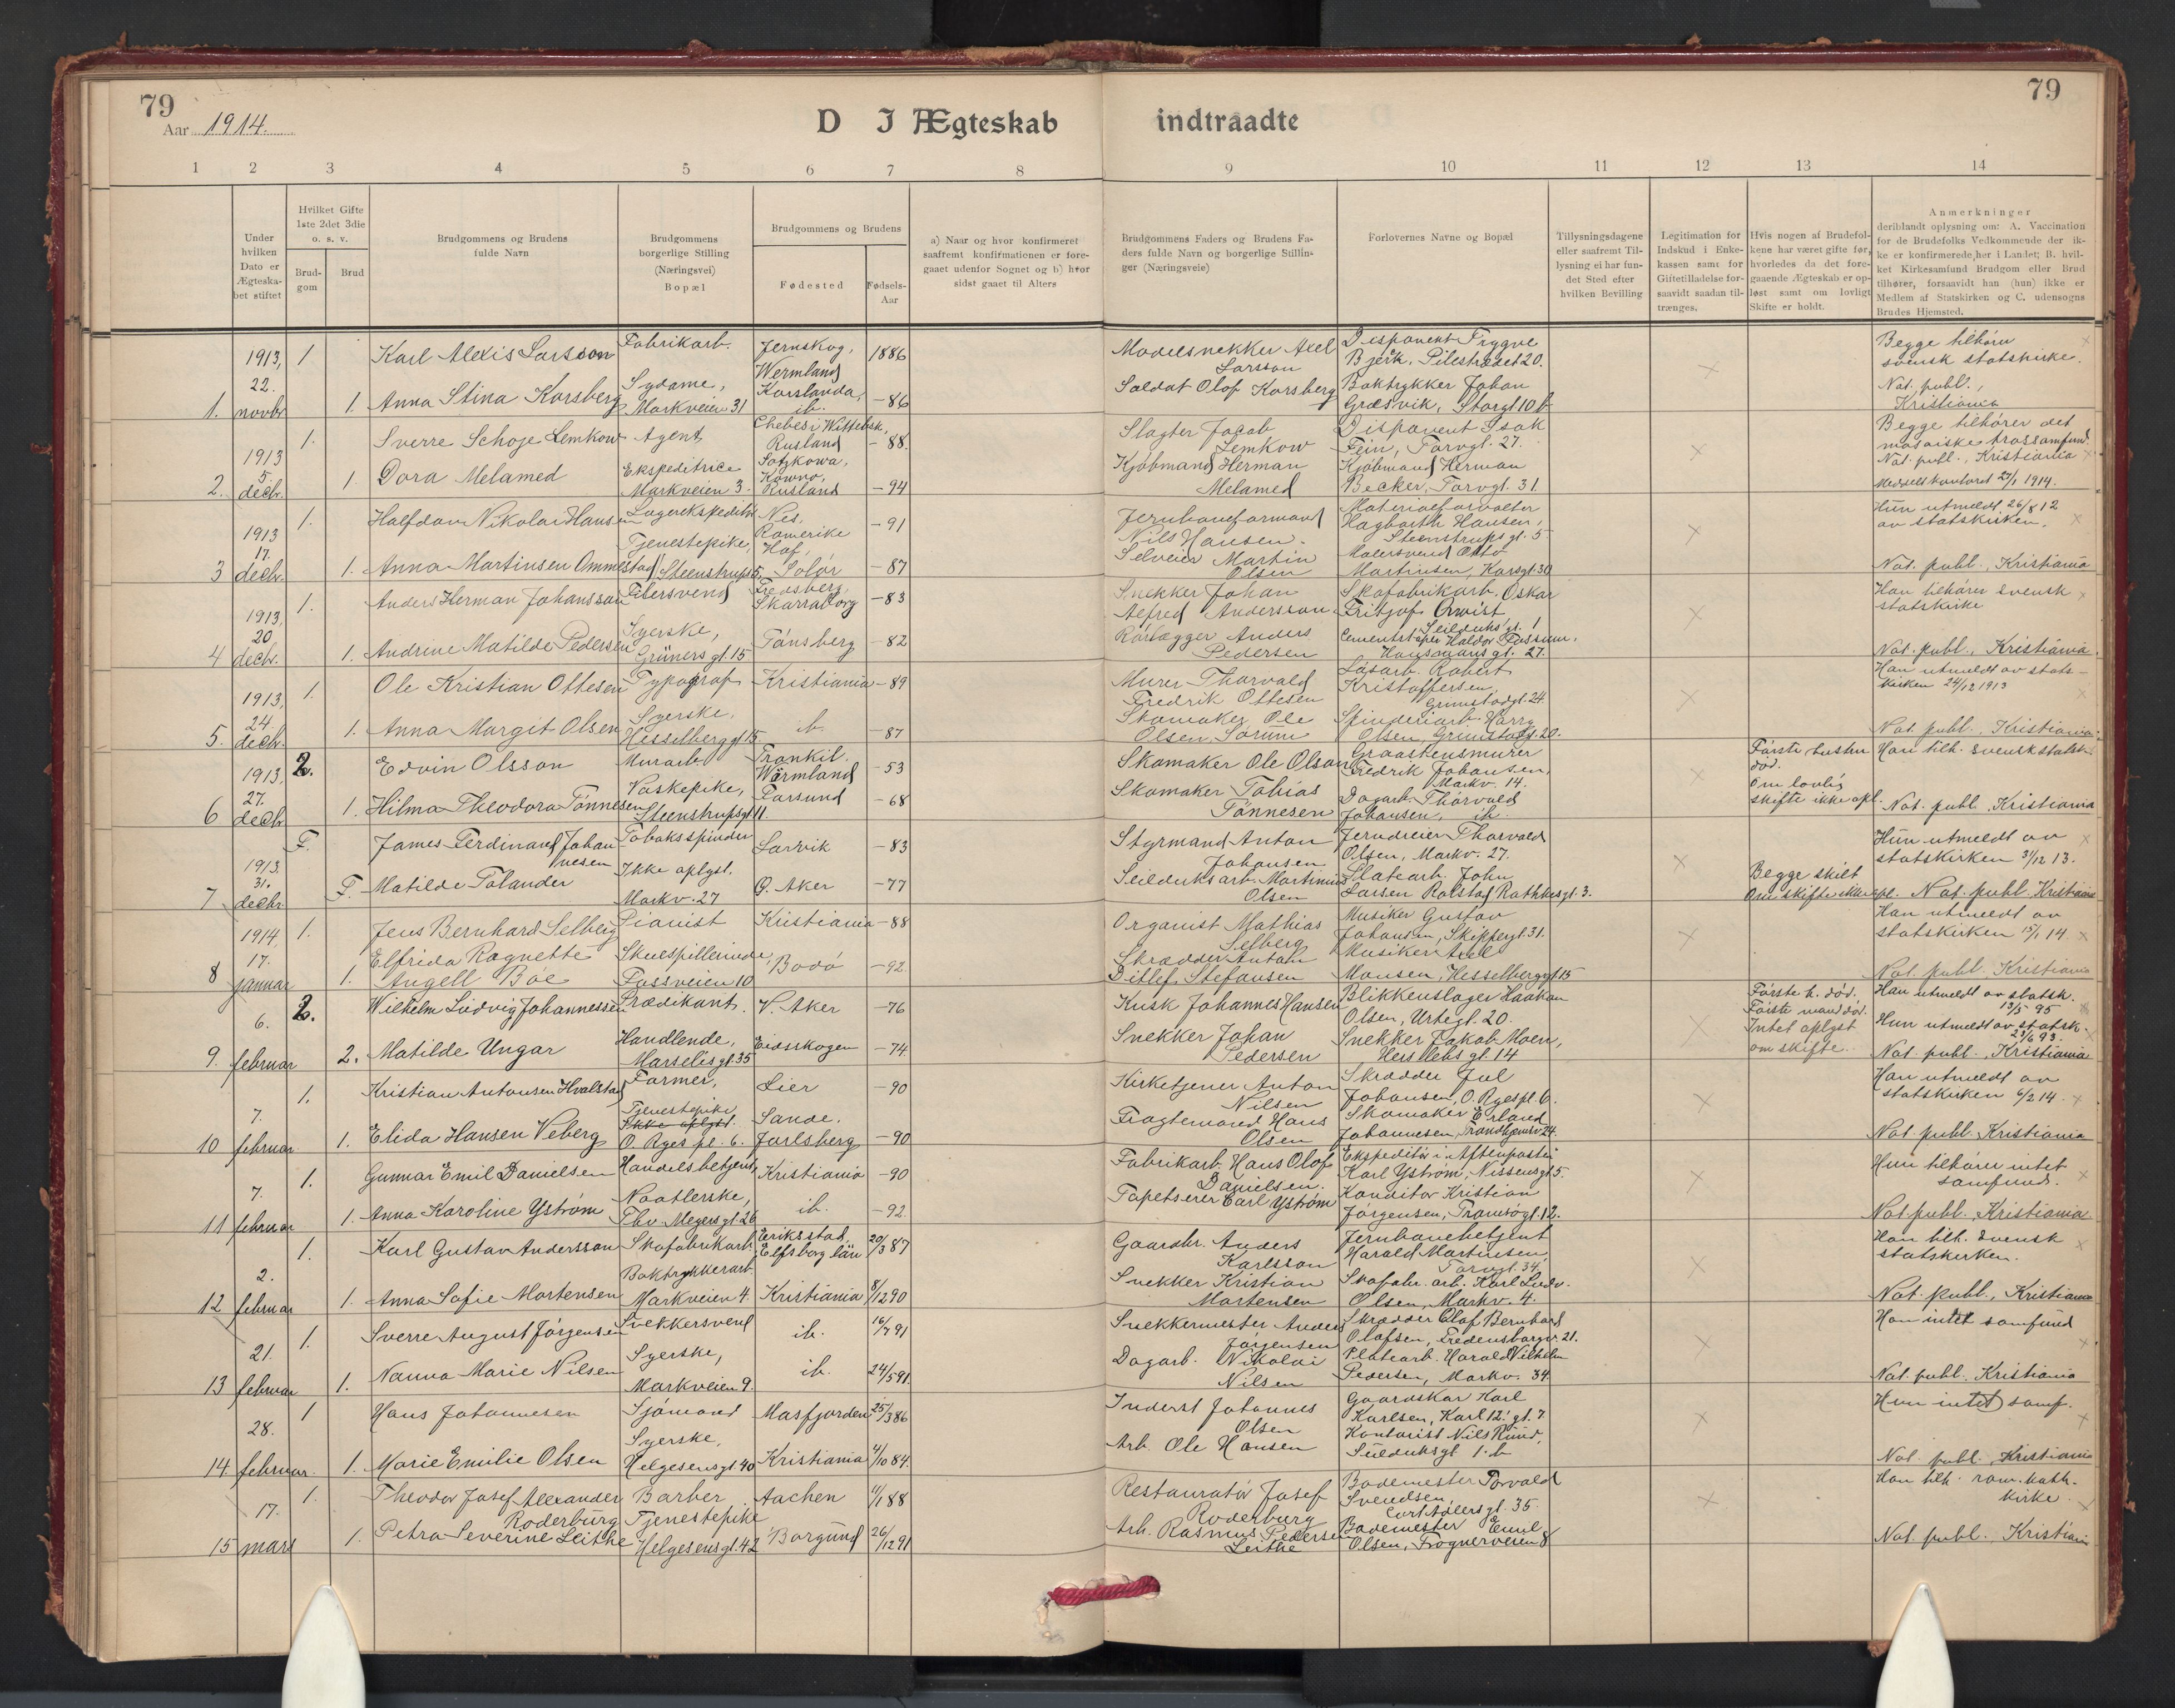 79
Aar 1914.
D I Ægteskab indtraadte
79
1 2 3 4 5 6 7 8 9 10 11 12 13 14
Under hvilken Dato er Ægteskabet stiftet
Hvilket Gifte 1ste 2det 3die o. s. v.
Brudgom
Brud
Brudgommens og Brudens fulde Navn
Brudgommens borgerlige Stilling (Næringsvei) Bopæl
Brudgommens og Brudens
Fødested
Fødsels-Aar
a) Naar og hvor konfirmeret saafremt konfirmationen er foregaaet udenfor Sognet og b) hvor sidst gaaet til Alters
Brudgommens Faders og Brudens Faders fulde Navn og borgerlige Stillinger (Næringsveie)
Forlovernes Navne og Bopæl
Tillysningsdagene eller saafremt Tillysning ei har fundet Sted efter hvilken Bevilling
Legitimation for Indskud i Enkekassen samt for Giftetilladelse forsaavidt saadan tiltrænges.
Hvis nogen af Brudefolkene har været gifte før, hvorledes da det foregaaende Ægteskab er opløst samt om lovligt Skifte er holdt.
Anmerkninger deriblandt oplysning om: A. Vaccination for de Brudefolks Vedkommende der ikke er konfirmerede her i Landet; B. hvilket Kirkesamfund Brudgom eller Brud tilhører, forsaavidt han (hun) ikke er Medlem af Statskirken og C. udensogns Brudes Hjemsted.
1. 1913, 22. novbr
1 Karl Alexis Larsson Fabrikarb. Jernskog, Wermland 1886 Modelsnekker Axel Larsson Disponent Trygve Bjerk, Pilestrædet 20. Begge tilhører svensk statskirke.
1. Anna Stina Korsberg Sydame, Markveien 31 Karlanda, ib. -86 Soldat Olof Korsberg Boktrykker Johan Græsvik, Storgt 10 b Not. publ., Kristiania
2. 1913 5. decbr.
1. Sverre Schoje Lemkow Agent Rusland -88. Slagter Jacob Lemkow Disponent Isak Fein, Torvgt. 27. Begge tilhører det mosaiske trossamfund.
1. Dora Melamed Ekspeditrice Markveien 3. Kowno, Rusland -94 Kjøbmand Herman Melamed Kjøbmand Herman Becker, Torvgt. 31. Not. publ., Kristiania
27/1 1914.
3 1913 17. decbr.
1. Halfdan Nikolai Hansen Lagerekspeditør Nes, Romerike -91 Jernbaneformand Nils Hansen. Materialforvalter Hagbarth Hansen, Steenstrups gt. 5 Hun utmeldt 26/8 12 av statskirken.
1. Anna Martinsen Ommestad Tjenestepike, Steenstrups 5. Hof, Solør -87 Selveier Martin Olsen Malersvend Otto Martinsen, Korsgt. 30 Not. publ., Kristiania
4 1913, 20 decbr.
1. Anders Herman Johansson Filersvend Fredsberg, Skarraborg -83 Snekker Johan Alfred Andersson Skofabrikarb. Oskar Fritjof Qwist, Seilduksgt. 1 Han tilhører svensk statskirke
1. Andrine Matilde Pedersen Syerske, Grüners gt. 15 Tønsberg -82 Rørlægger Anders Pedersen Cementstøper Haldor Fossum, Hausmans gt. 27. Not. publ., Kristiania
5. 1913, 24. decbr.
1. Ole Kristian Ottesen Typograf Kristiania -89 Murer Thorvald Fredrik Ottesen Løsarb. Robert Kristoffersen, Grimstadgt. 24. Han utmeldt av statskirken 24/12 1913
1. Anna Margit Olsen Syerske, Hesselberggt 15. ib. -87 Skomaker Ole Olsen Sørum Spinderiarb. Harry Olsen, Grimstadgt. 20. Not. publ., Kristiania
6 1913, 27. decbr.
2. Edvin Olsson Murarb. Trankil. Wärmland -53 Skomaker Ole Olson Graastensmurer Fredrik Johansen, Markv. 14. Første hustru død. Om lovlig skifte ikke opl. Han tilh. svensk statsk.
1. Hilma Theodora Tønnesen Vaskepike, Steenstrupsgt 11. Farsund -68 Skomaker Tobias Tønnesen Dagarb. Thorvald Johansen, ib. Not. publ. Kristiania
7 1913. 31. decbr.
F. James Ferdinand Johannesen Tobaksspinder Larvik -83 Styrmand Anton Johansen Jerndreier Thorvald Olsen, Markv. 27. Hun utmeldt av statskirken 31/12 13.
F. Matilde Tolander Ikke oplyst. Markv. 27 Ø. Aker -77 Seilduksarb. Martinius Olsen Platearb. John Larsen Rolstad Rathkesgt. 3. Begge skilt Om skifte ikke opl. Not. publ. Kristiania
8 1914, 17. januar
1. Jens Bernhard Selberg Pianist Kristiania -88 Organist Mathias Selberg Musiker Gustav Johansen, Skippergt. 31. Han utmeldt av statskirken 15/1 14
1. Elfrida Ragnette Angell Bøe Skuespillerinde, Fossveien 10 Bodø -92. Skrædder Anton Ditlef Stefansen Musiker Axel Monsen, Hesselberggt. 15 Not. publ. Kristiania
9. 6. februar
2. Wilhelm Ludvig Johannessen Prædikant. V. Aker -76 Kusk Johannes Hansen Blikkenslager Haakon Olsen, Urtegt. 20. Første h. død. Første mand død. Intet oplyst om skifte. Han utmeldt av statsk. 13/5 95
2. Matilde Ungar Handlende, Marselis gt. 35 Eidsskogen -74 Snekker Johan Pedersen Snekker Jakob Moen, Herslebs gt. 14 Hun utmeldt av statsk. 23/6 93. Not. publ., Kristiania
10 7. februar
1. Kristian Antonsen Hvalstad Farmer, Lier -90 Kirketjener Anton Nilsen Skrædder Jul Johansen, O. Ryespl. 6. Han utmeldt av statskirken 6/2 14.
1. Elida Hansen Veberg Tjenestepike Ikke oplyst. O. Ryes pl. 6. Sande, Jarlsberg -90 Fragtemand Hans Olsen Skomaker Erland Johannesen, Trondhjemsv. 24. Not. publ. Kristiania
11 7. februar
1. Gunnar Emil Danielsen Handelsbetjent Kristiania -90 Fabrikarb. Hans Olof Danielsen. Ekspeditør i Aftenposten Karl Ystrøm, Nissensgt. 5. Hun tilhører intet samfund.
1. Anna Karoline Ystrøm Naatlerske, Thv. Meyers gt. 26 ib. -92. Tapetserer Carl Ystrøm Konditor Kristian Jørgensen, Tromsøgt. 12. Not. publ., Kristiania
12 2. februar
1. Karl Gustav Andersson Skofabrikarb. Eriksstad, Elfsborg län 20/3 87 Gaardbr. Anders Karlsson Jernbanebetjent Harald Martinsen, Torvgt. 34. Han tilh. svensk statskirken.
1. Anna Sofie Mortensen Boktrykkerarb. Markveien 4. Kristiania 8/12 90 Snekker Kristian Mortensen Skofabr. arb. Karl Ludv. Olsen, Markv. 4. Not. publ., Kristiania
13 21. februar
1. Sverre August Jørgensen Snekkersvend ib. 16/7 91 Snekkermester Anders Jørgensen Skrædder Olaf Bernhard Olafsen, Fredensborgv. 21. Han intet samfund
1. Nanna Marie Nilsen Syerske, Markveien 9. ib. 24/5 91. Dagarb. Nikolai Nilsen Platearb. Harald Vilhelm Pedersen, Markv. 34. Not. publ. Kristiania
14. 28. februar.
1 Hans Johannesen Sjømand Masfjorden 25/3 86 Inderst Johannes Olsen Gaardskar Karl Karlsen, Karl 12' gt. 7. Hun intet samf.
1. Marie Emilie Olsen Syerske, Helgesensgt. 40 Kristiania 4/10 84. Arb. Ole Hansen Kontorist Nils Ruud, Seilduksgt 1. b Not. publ., Kristiania
15 17. mars
1. Theodor Josef Alexander Roderburg Barber Aachen 11/1 88 Restauratør Josef Roderburg Bademester Torvald Svendsen, Cort Adlersgt. 35. Han tilh. rom. kath. kirke
1. Petra Severine Leithe Tjenestepike Helgesensgt. 42 Borgund 26/12 91 Arb. Rasmus Pedersen Leithe Bademester Emil Olsen, Frognerveien 8 Not. publ., Kristiania